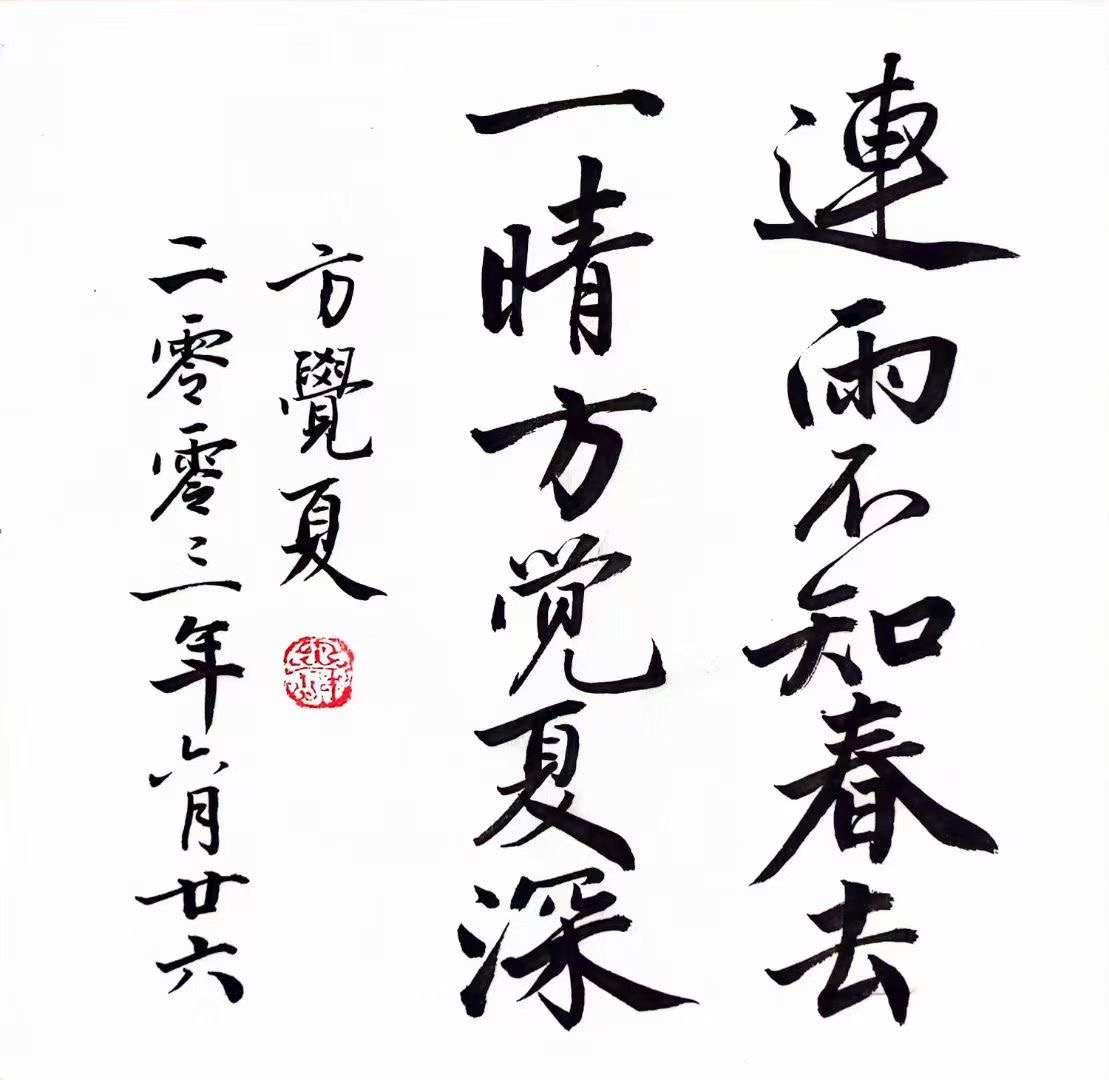 連雨不知春去
一晴方觉夏深
方覺夏
二零零三年六月廿六